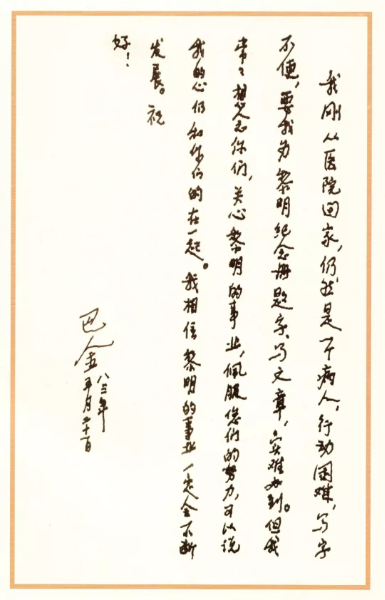 我刚从医院回家，仍然是一个病人，行动困难，写字
不便，要我为黎明纪念册题字、写文章，实难办到。但我
常常想念你们，关心黎明的事业，佩服您们的努力，可以说
我的心仍和你们的在一起。我相信黎明的事业一定会不断
发展。祝
好！
巴金
八三年
五月二十一日